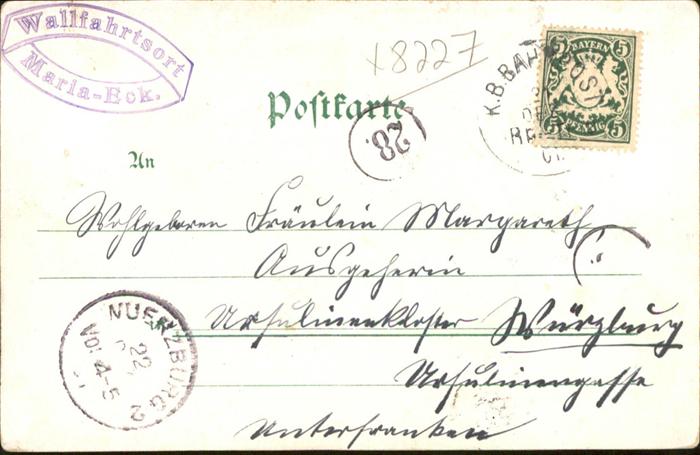 Wallfahrtsort
Maria-Eck.
18227
BAYERN
5 5
5 5
PFENNIG
K.B.BAHNPOST
Postkarte
28.
An
Wohlgeboren Fräulein Margareth
Ausgeherin
Ursulinenkloster Würzburg
Ursulinengasse
Unterfranken
WUERZBURG 2
22
Vor 4-5